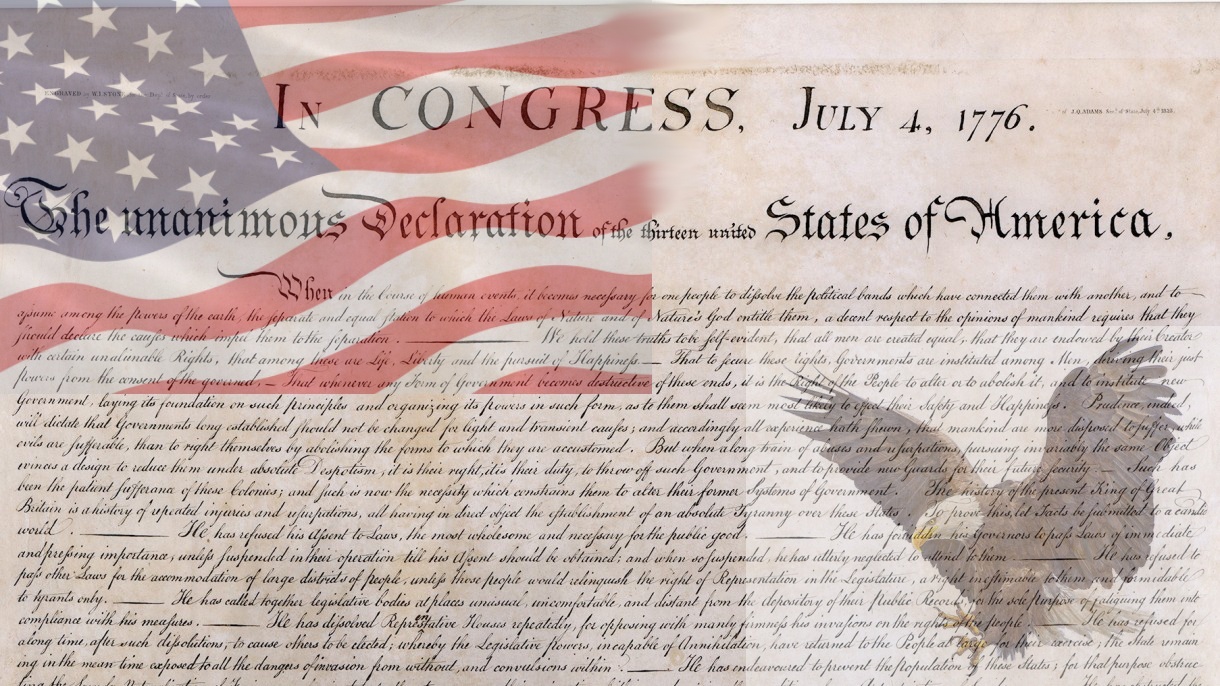 ENGRAVED by W.I.STONE
of J.Q.ADAMS Sec.y of State, July 4th 1823.
In CONGRESS, July 4, 1776.
The unanimous Declaration of the thirteen united States of America,
When in the Course of human events, it becomes necessary for one people to dissolve the political bands which have connected them with another, and to
assume among the powers of the earth, the separate and equal station to which the Laws of Nature and of Nature's God entitle them, a decent respect to the opinions of mankind requires that they
should declare the causes which impel them to the separation. —— We hold these truths to be self-evident, that all men are created equal, that they are endowed by their Creator
with certain unalienable Rights, that among these are Life, Liberty and the pursuit of Happiness. — That to secure these rights, Governments are instituted among Men, deriving their just
powers from the consent of the governed, — That whenever any Form of Government becomes destructive of these ends, it is the Right of the People to alter or to abolish it, and to institute new
Government, laying its foundation on such principles and organizing its powers in such form, as to them shall seem most likely to effect their Safety and Happiness. Prudence, indeed,
will dictate that Governments long established should not be changed for light and transient causes; and accordingly all experience hath shewn, that mankind are more disposed to suffer, while
evils are sufferable, than to right themselves by abolishing the forms to which they are accustomed. But when a long train of abuses and usurpations, pursuing invariably the same Object
evinces a design to reduce them under absolute Despotism, it is their right, it is their duty, to throw off such Government, and to provide new Guards for their future security. — Such has
been the patient sufferance of these Colonies; and such is now the necessity which constrains them to alter their former Systems of Government. The history of the present King of Great
Britain is a history of repeated injuries and usurpations, all having in direct object the establishment of an absolute Tyranny over these States. To prove this, let Facts be submitted to a candid
world. —— He has refused his Assent to Laws, the most wholesome and necessary for the public good. —— He has forbidden his Governors to pass Laws of immediate
and pressing importance, unless suspended in their operation till his Assent should be obtained; and when so suspended, he has utterly neglected to attend to them. —— He has refused to
pass other Laws for the accommodation of large districts of people, unless those people would relinquish the right of Representation in the Legislature, a right inestimable to them and formidable
to tyrants only. —— He has called together legislative bodies at places unusual, uncomfortable, and distant from the depository of their Public Records, for the sole purpose of fatiguing them into
compliance with his measures. —— He has dissolved Representative Houses repeatedly, for opposing with manly firmness his invasions on the rights of the people. —— He has refused for
a long time, after such dissolutions, to cause others to be elected; whereby the Legislative powers, incapable of Annihilation, have returned to the People at large for their exercise; the State remain
ing in the mean time exposed to all the dangers of invasion from without, and convulsions within. —— He has endeavoured to prevent the population of these States; for that purpose obstruc